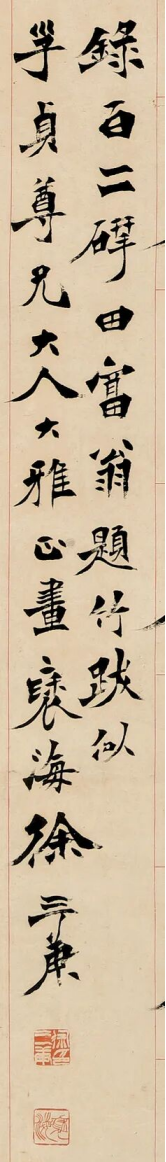 錄百二硯田富翁題竹跋似
孚貞尊兄大人大雅正畫褎海徐三庚
徐三庚